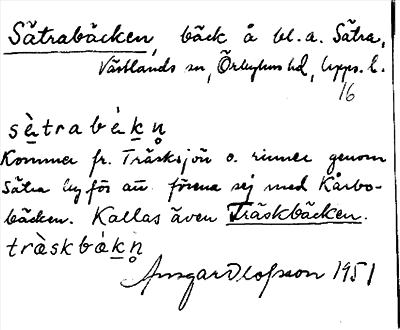 Sätrabäcken, bäck å bl.a. Sätra,
Västlands sn, Örbyhus hd, Upps. l.
16
sètrabákn̥
Kommer fr. Träsksjön o. rinner genom
Sätra by för att förena sej med Kärbo-
bäcken. Kallas även Träskbäcken.
tràskbákn̥
Ansgar Olofsson 1951